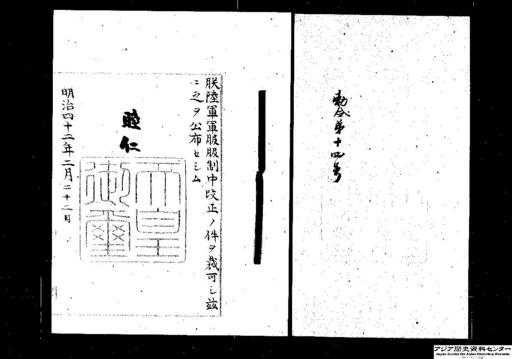 勅令第十四号
朕陸軍軍服服制中改正ノ件ヲ裁可シ玆
ニ之ヲ公布セシム
睦仁
天皇御璽
明治四十二年二月二十二日
アジア歴史資料センター
Japan Center for Asian Historical Records